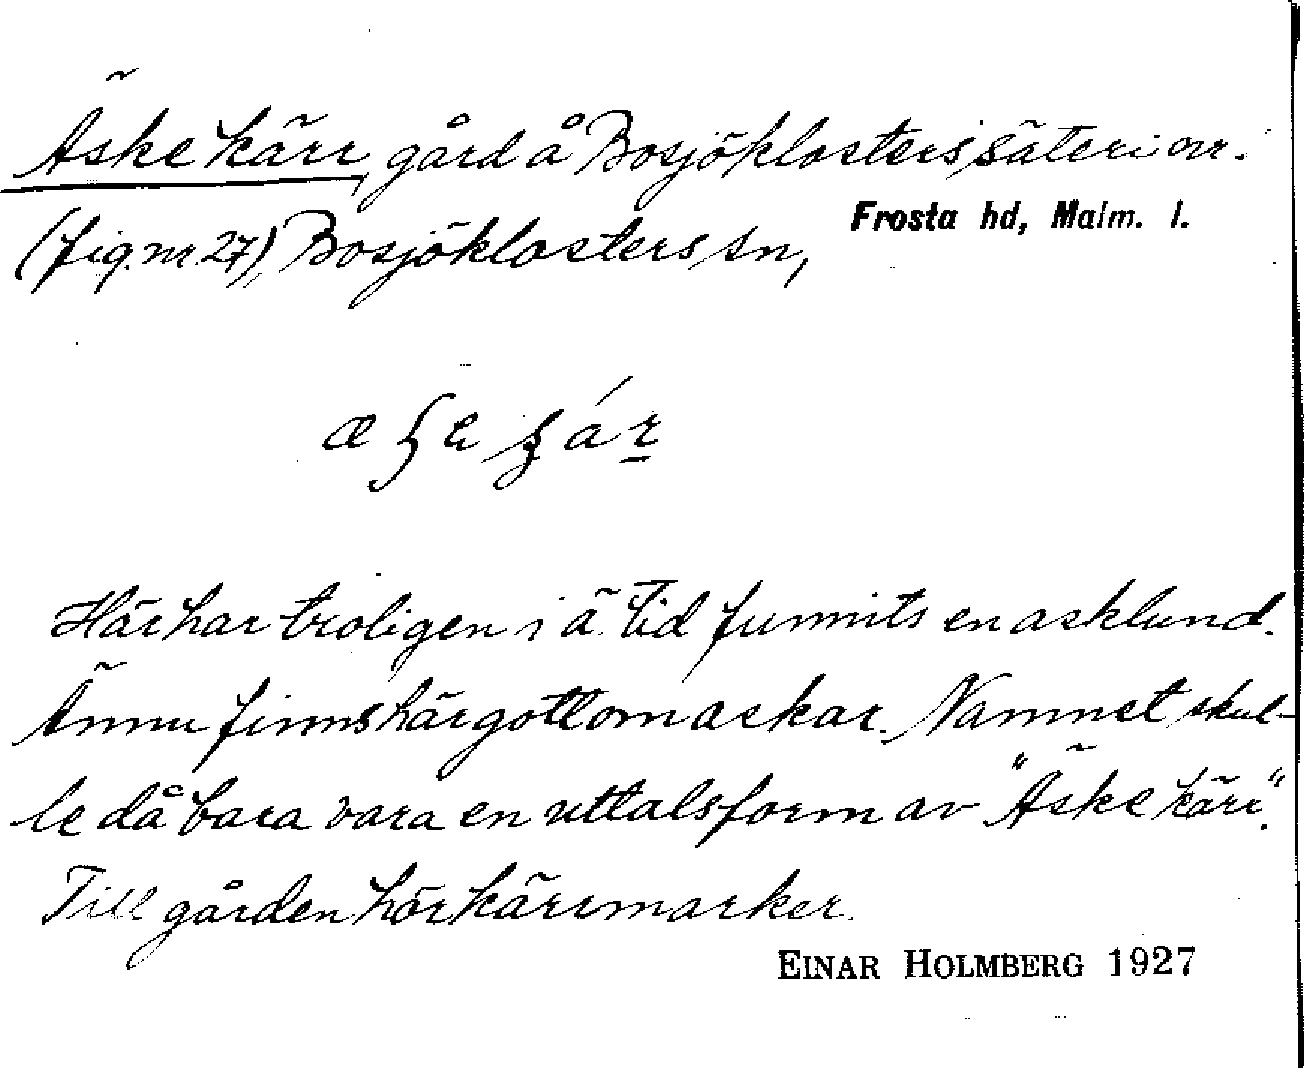 Äskekärr, gård å Bosjöklosters säteri om.
Frosta hd, Malm. l.
(fig. nr 27), Bosjöklosters sn,
Här har troligen i ä. tid funnits en asklund.
Ännu finns här gott om askar. Namnet skul-
le då bara vara en uttalsform av "Äskekärr".
Till gården hör kärrmarker.
EINAR HOLMBERG 1927